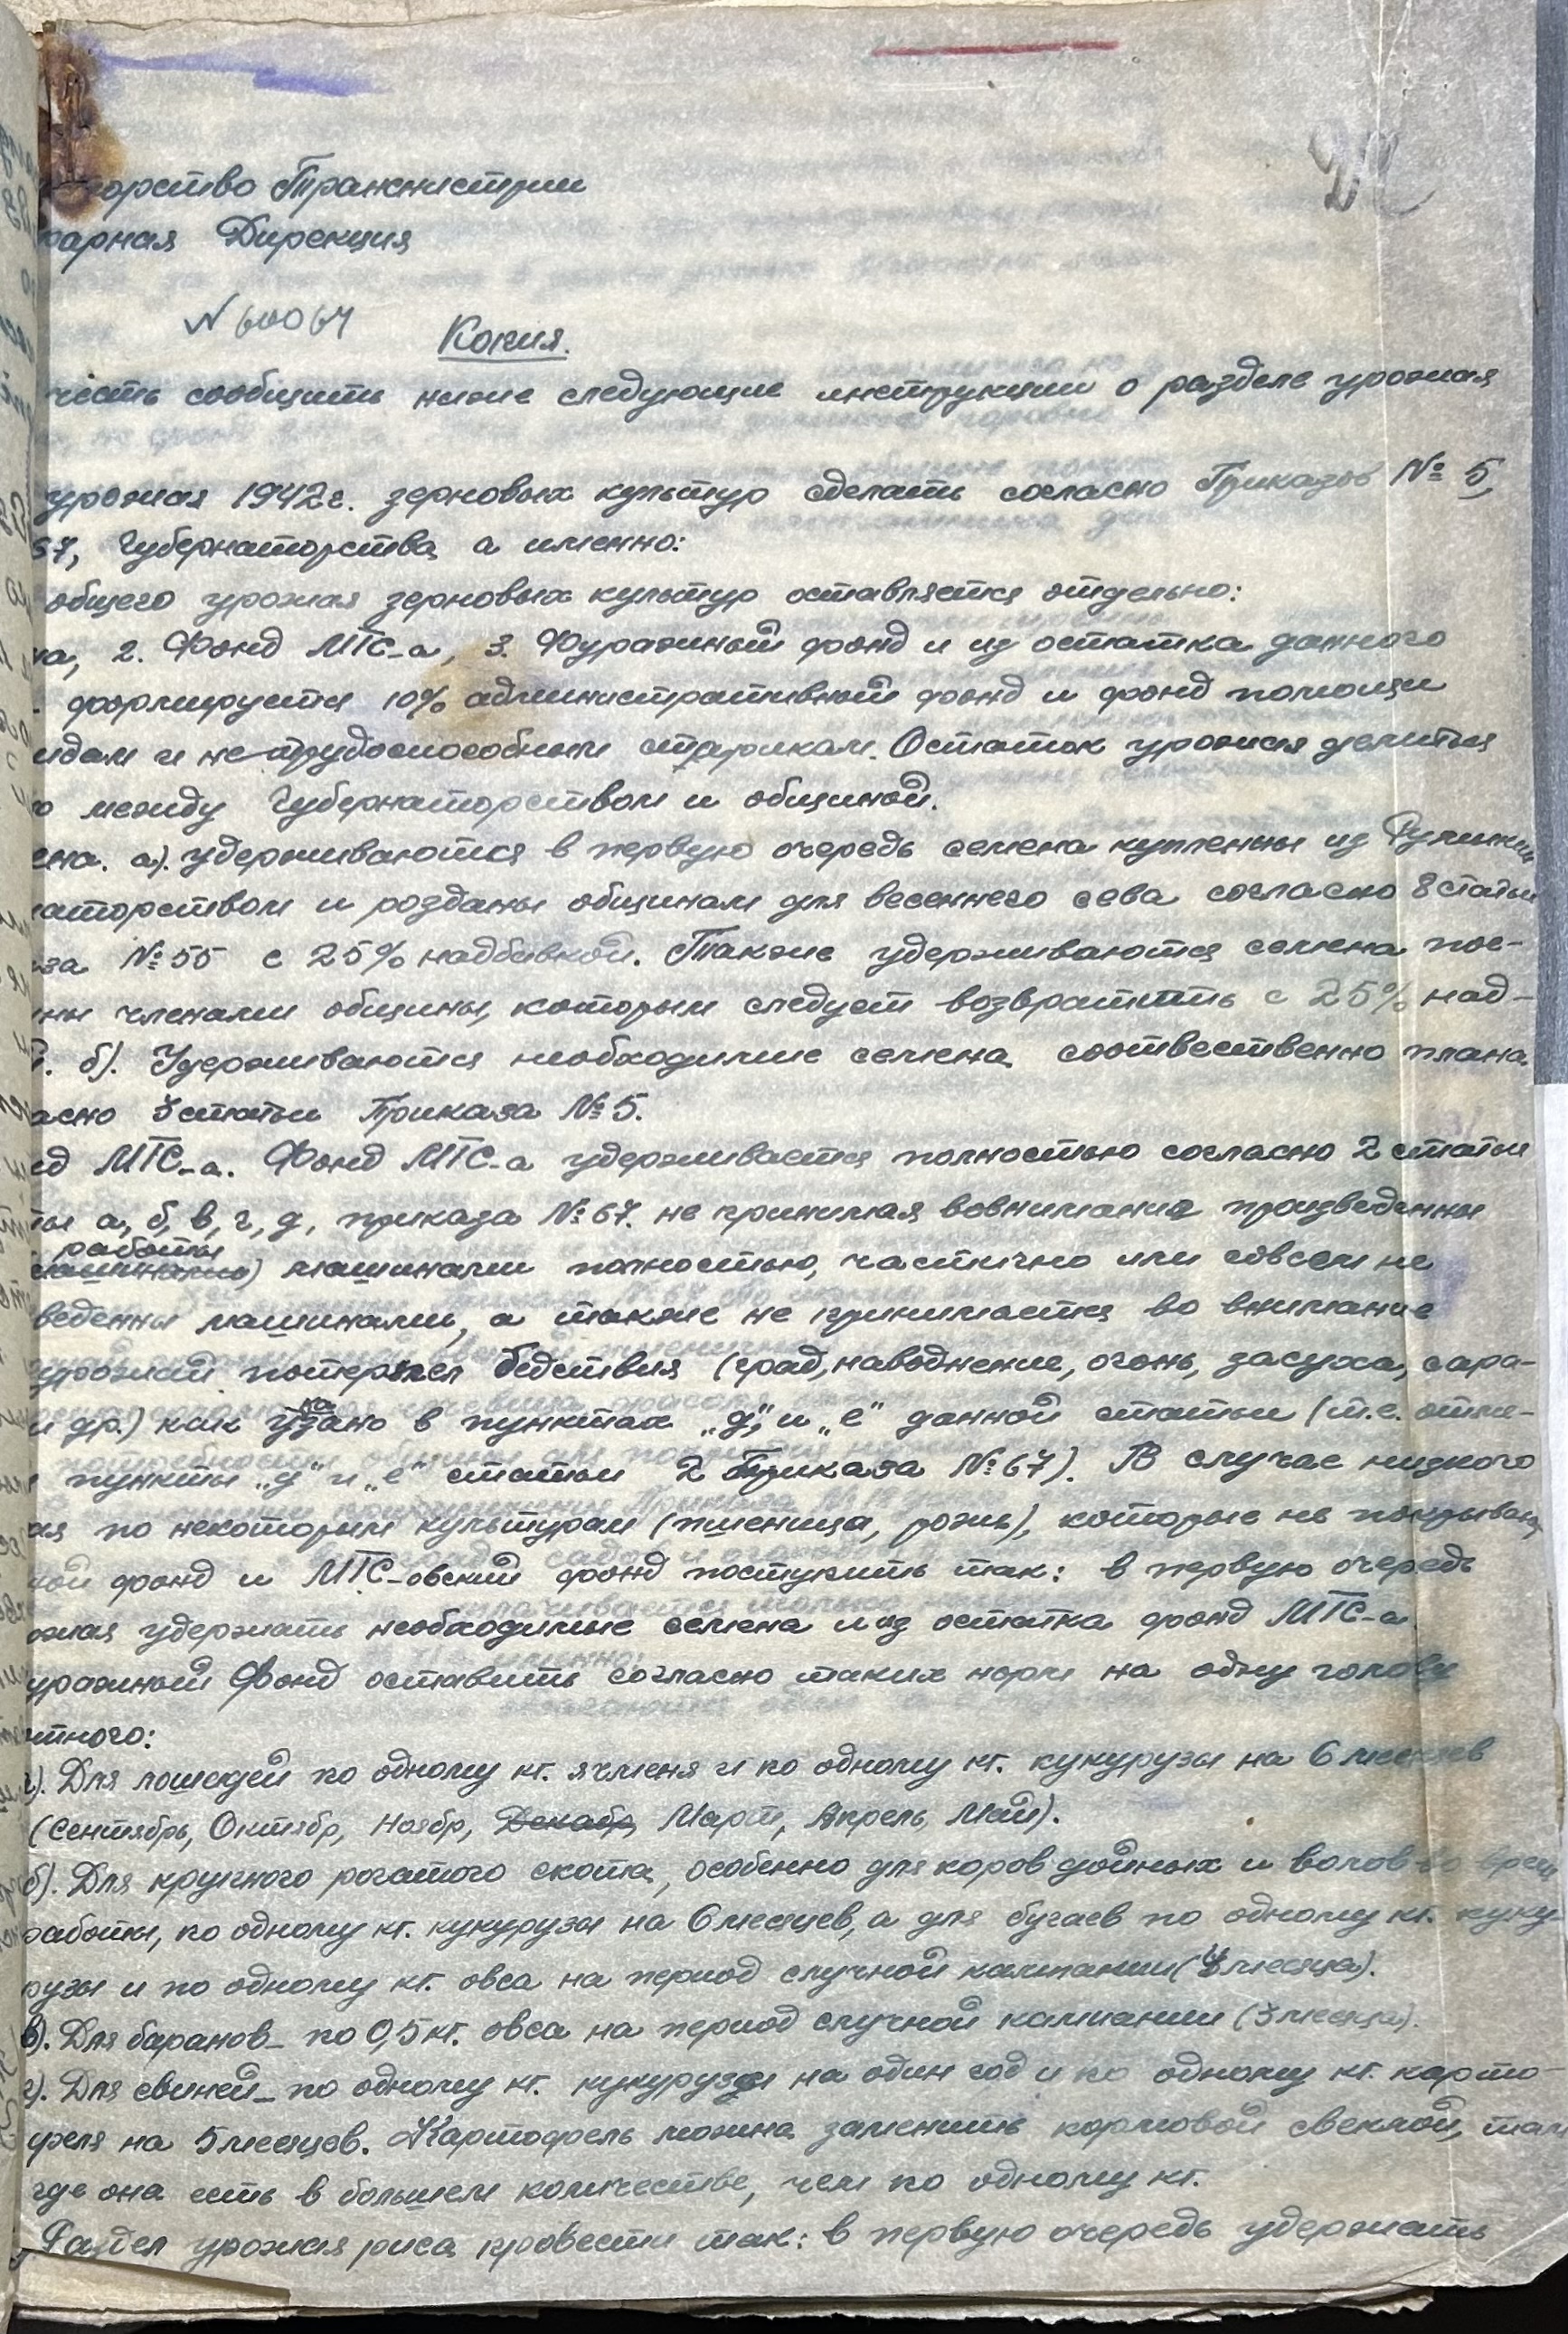 торство Транснистрии
рарная Дирекция
N 60064
Копия.
честь сообщить ниже следующие инструкции о разделе урожая
урожая 1942 г. зерновых культур сделать согласно Приказов № 5,
67, Губернаторства, а именно:
общего урожая зерновых культур оставляется отдельно:
на, 2. Фонд МТС-а, 3. Фуражный фонд и из остатка данного
формируется 10% административный фонд и фонд помощи
идам и не трудоспособным старикам. Остаток урожая делиться
о между Губернаторством и общиной.
ена. а). удерживаются в первую очередь семена купленны из Румынии
наторством и розданы общинам для весеннего сева согласно 8 статьи
за № 55 с 25% надбавкой. Также удерживаются семена пос-
ны членами общины, которым следует возвратить с 25% над-
й. б). Удерживаются необходимые семена соотвественно плана
асно 3 статьи Приказа № 5.
нд МТС-а. Фонд МТС-а удерживается полностью согласно 2 статьи
ты а, б, в, г, д, приказа № 67. не принимая вовнимание произведенны
работы
машинами полностью, частично или совсем не
ведены машинами, а также не принимается во внимание
урожай потерпел бедствия (град, наводнение, огонь, засуха, сара-
и др.) как указано в пунктах „д" и „е" данной статьи (т.е. отме-
я пункты „д" и „е" статьи 2 Приказа № 67). В случае низкого
ая по некоторым культурам (пшеница, рожь), которые не покрывают
ной фонд и МТС-овский фонд поступить так: в первую очередь
ожая удержать необходимые семена и из остатка фонд МТС-а.
уражный Фонд оставить согласно таких норм на одну голову
отного:
а). Для лошадей по одному кг. ячменя и по одному кг. кукурузы на 6 месяцев
(Сентябрь, Октябр, Ноябр, Декабр, Март, Апрель, Май).
б). Для крупного рогатого скота, особенно для коров дойных и волов во время
работы, по одному кг. кукурузы на 6 месяцев, а для бугаев по одному кг. куку-
рузы и по одному кг. овса на период случной кампании (4 месяца).
в). Для баранов - по 0,5 кг. овса на период случной кампании (3 месяца).
г). Для свиней - по одному кг. кукурузы на один год и по одному кг. карто-
феля на 5 месяцев. Картофель можна заменить кормовой свеклой, там
где она есть в большем количестве, чем по одному кг.
Раздел урожая риса провести так: в первую очередь удержать